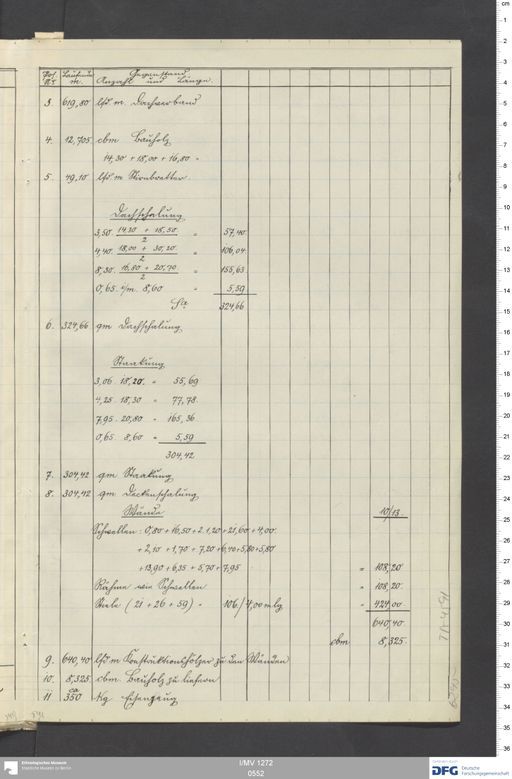 Pos. Nr. Laufende Nr. Gegenstand
Anzahl und Länge
3. 619,80 lfd m. Dachverband
4. 12,705 cbm Bauholz
14,30 + 18,00 + 16,80 =
5. 49,10 lfd m Stirnbretter
Dachschalung
3,50 . 14,20 + 18,50 / 2 = 57,40
4,40 . 18,00 + 30,20 / 2 = 106,04
8,30 . 16,80 + 20,70 / 2 = 155,63
0,65 . 8,60 = 5,59
Sa. 324,66
6. 324,66 qm Dachschalung
Staakung
3,06 . 18,20 = 55,69
4,25 . 18,30 = 77,78
7,95 . 20,80 = 165,36
0,65 . 8,60 = 5,59
304,42
7. 304,42 qm Staakung
8. 304,42 qm Deckenschalung
Wände 10/13
Schwellen: 0,80 + 16,50 + 2.1,20 + 21,60 + 4,00
+ 2,10 + 1,70 + 7,20 + 6,40 + 5,80 + 5,80
+ 13,90 + 6,35 + 5,70 + 7,95 = 108,20
Rähme wie Schwellen = 108,20
Stiele (21 + 26 + 59) = 106/4,00 m lg = 424,00
640,40
cbm 8,325
9. 640,40 lfd m Konstruktionshölzer zu den Wänden
10. 8,325 cbm Bauholz zu liefern
11 ca 350 kg Eisenzeug
Ethnologisches Museum
Staatliche Museen zu Berlin
I/MV 1272
0552
DFG Deutsche
Forschungsgemeinschaft
cm
1
2
3
4
5
6
7
8
9
10
11
12
13
14
15
16
17
18
19
20
21
22
23
24
25
26
27
28
29
30
31
32
33
34
35
36